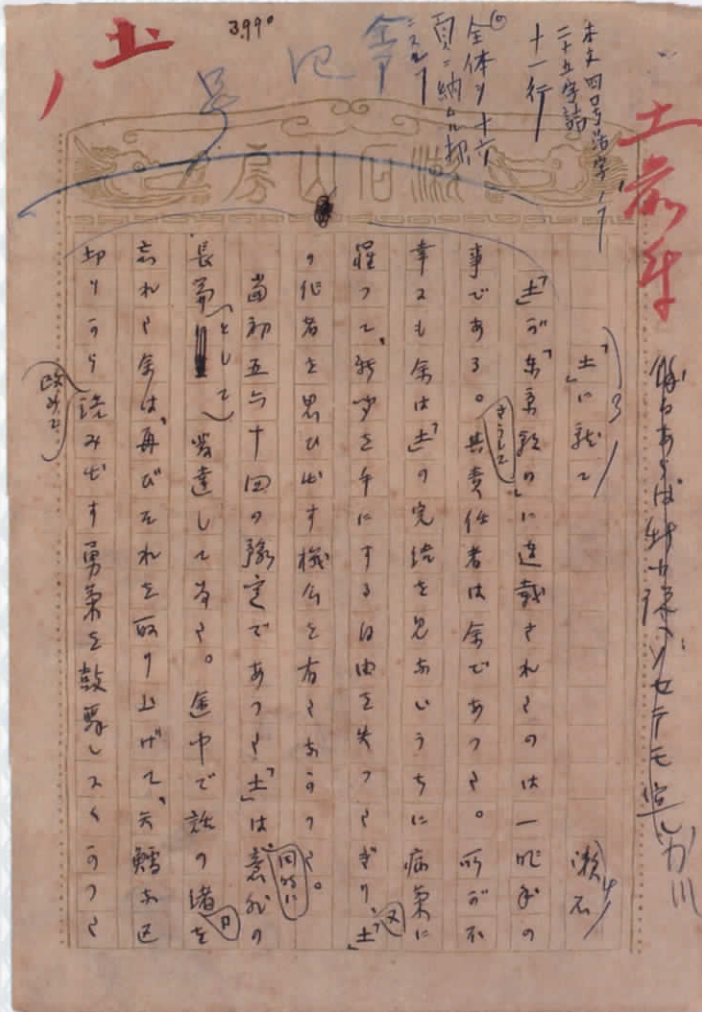 本文四号活字
二十五字詰
十一行
全体ヲ十六
頁ニ納ムル
3990
号
記
土
漱石山房
「土」に就て
漱石
「土」が「東京朝日」に連載されたのは一昨年の
事である。さうして其責任者は余であつた。所が不
幸にも余は「土」の完結を見ないうちに病気に
罹つて、新聞を手にする自由を失つたぎり、又「土」
の作者を思ひ出す機会を有たなかつた。
当初五六十回の予定であつた「土」は、同時に意外の
長篇として発達してゐた。途中で話の緒を
忘れた余は、再びそれを取り上げて、矢鱈な区
切りから改めて読み出す勇気を鼓舞しにくかつた